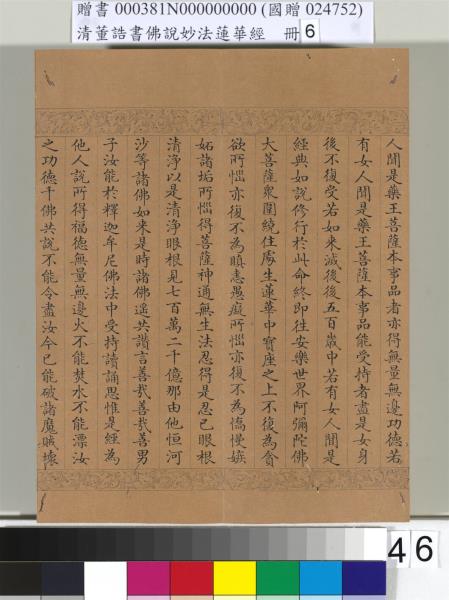 贈書 000381N000000000 (國贈 024752)
清董誥書佛說妙法蓮華經 冊 6
人聞是藥王菩薩本事品者亦得無量無邊功德若
有女人聞是藥王菩薩本事品能受持者盡是女身
後不復受若如來滅後後五百歲中若有女人聞是
經典如說修行於此命終即往安樂世界阿彌陀佛
大菩薩眾圍繞住處生蓮華中寶座之上不復為貪
欲所惱亦復不為瞋恚愚癡所惱亦復不為憍慢嫉
妬諸垢所惱得菩薩神通無生法忍得是忍已眼根
清淨以是清淨眼根見七百萬二千億那由他恒河
沙等諸佛如來是時諸佛遙共讚言善哉善哉善男
子汝能於釋迦牟尼佛法中受持讀誦思惟是經為
他人說所得福德無量無邊火不能焚水不能漂汝
之功德千佛共說不能令盡汝今已能破諸魔賊壞
46